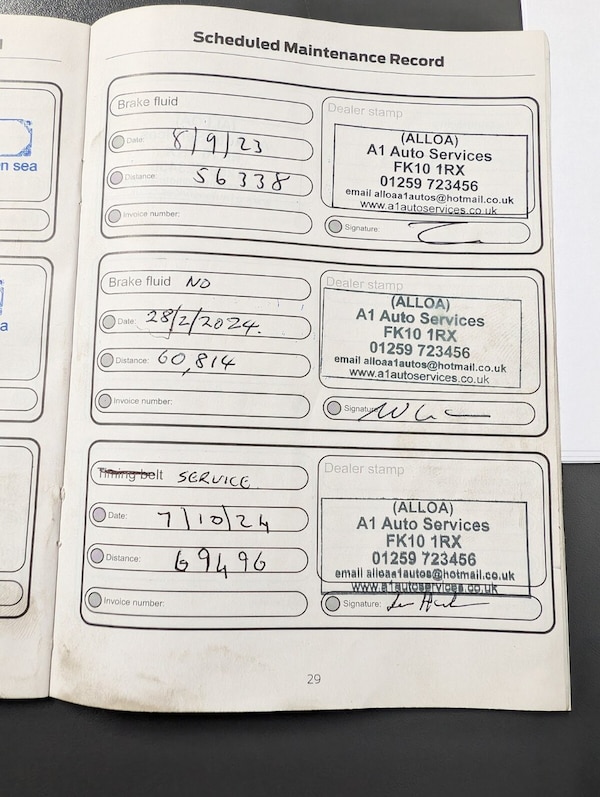 n sea
a
Scheduled Maintenance Record
Brake fluid
Date: 8/9/23
Distance: 56338
Invoice number:
Dealer stamp
(ALLOA)
A1 Auto Services
FK10 1RX
01259 723456
email alloaa1autos@hotmail.co.uk
www.a1autoservices.co.uk
Signature:
Brake fluid NO
Date: 28/2/2024.
Distance: 60,814
Invoice number:
Dealer stamp
(ALLOA)
A1 Auto Services
FK10 1RX
01259 723456
email alloaa1autos@hotmail.co.uk
www.a1autoservices.co.uk
Signature
Timing belt SERVICE
Date: 7/10/24
Distance: 69496
Invoice number:
Dealer stamp
(ALLOA)
A1 Auto Services
FK10 1RX
01259 723456
email alloaa1autos@hotmail.co.uk
www.a1autoservices.co.uk
Signature:
29